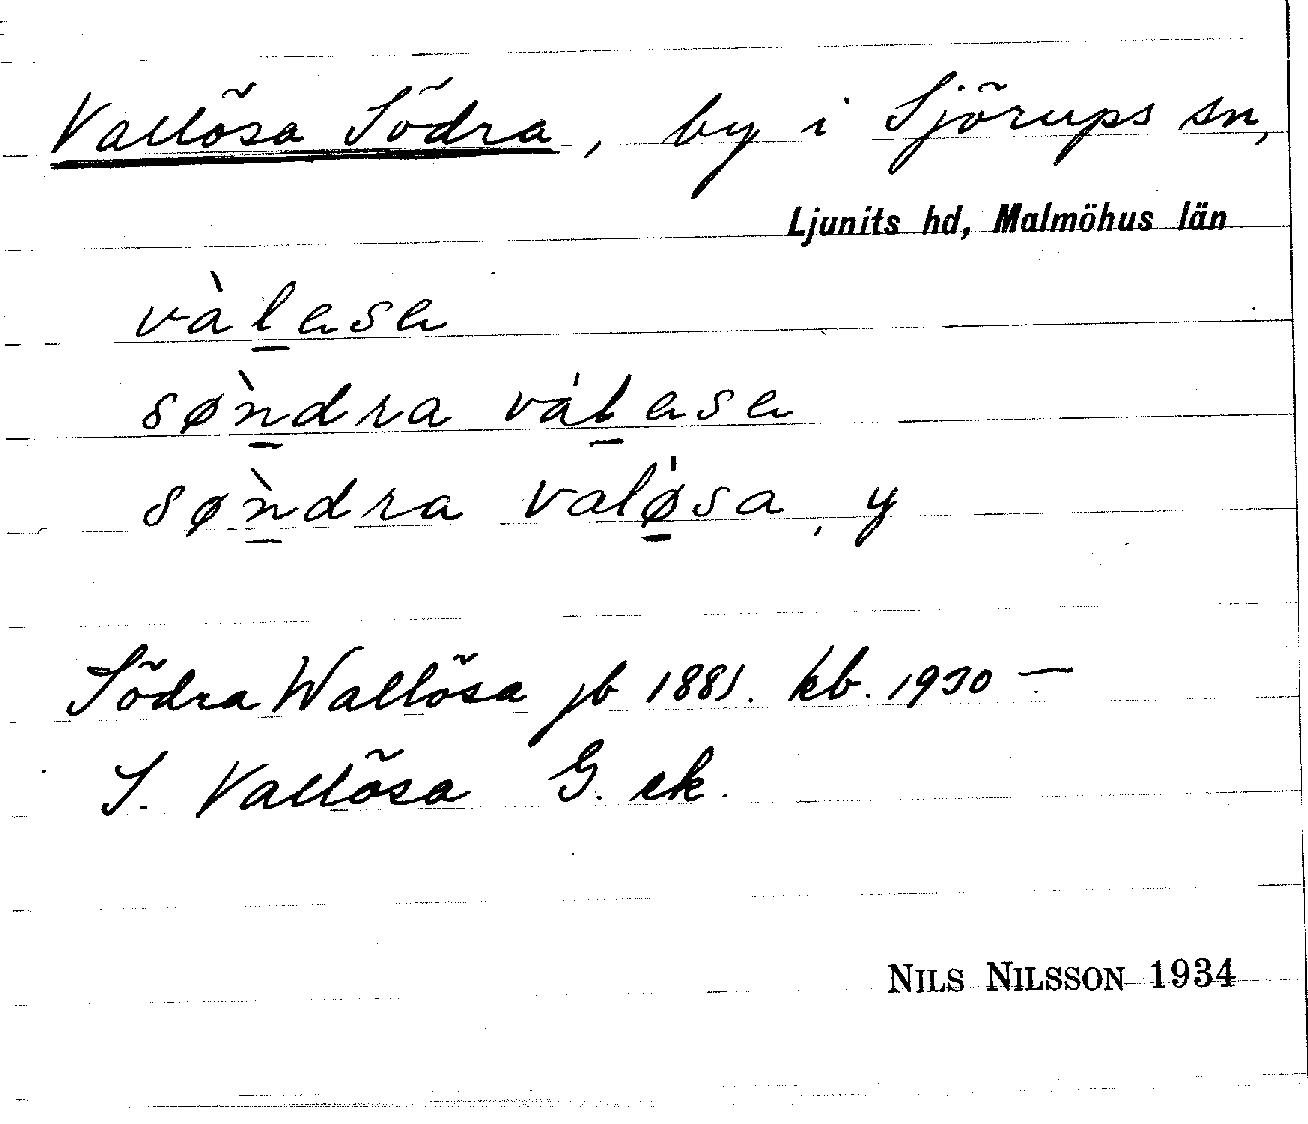 Vallösa Södra, by i Sjörups sn,
Ljunits hd, Malmöhus län
vàl̲asa
søǹ̲dra vál̲asa
søǹ̲dra valǿ̲sa, y
Södra Wallösa jb 1881. kb. 1930 —
S. Vallösa G. ek.
NILS NILSSON 1934